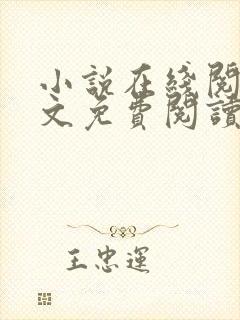 小説在綫閱
文免費閱讀
王忠運